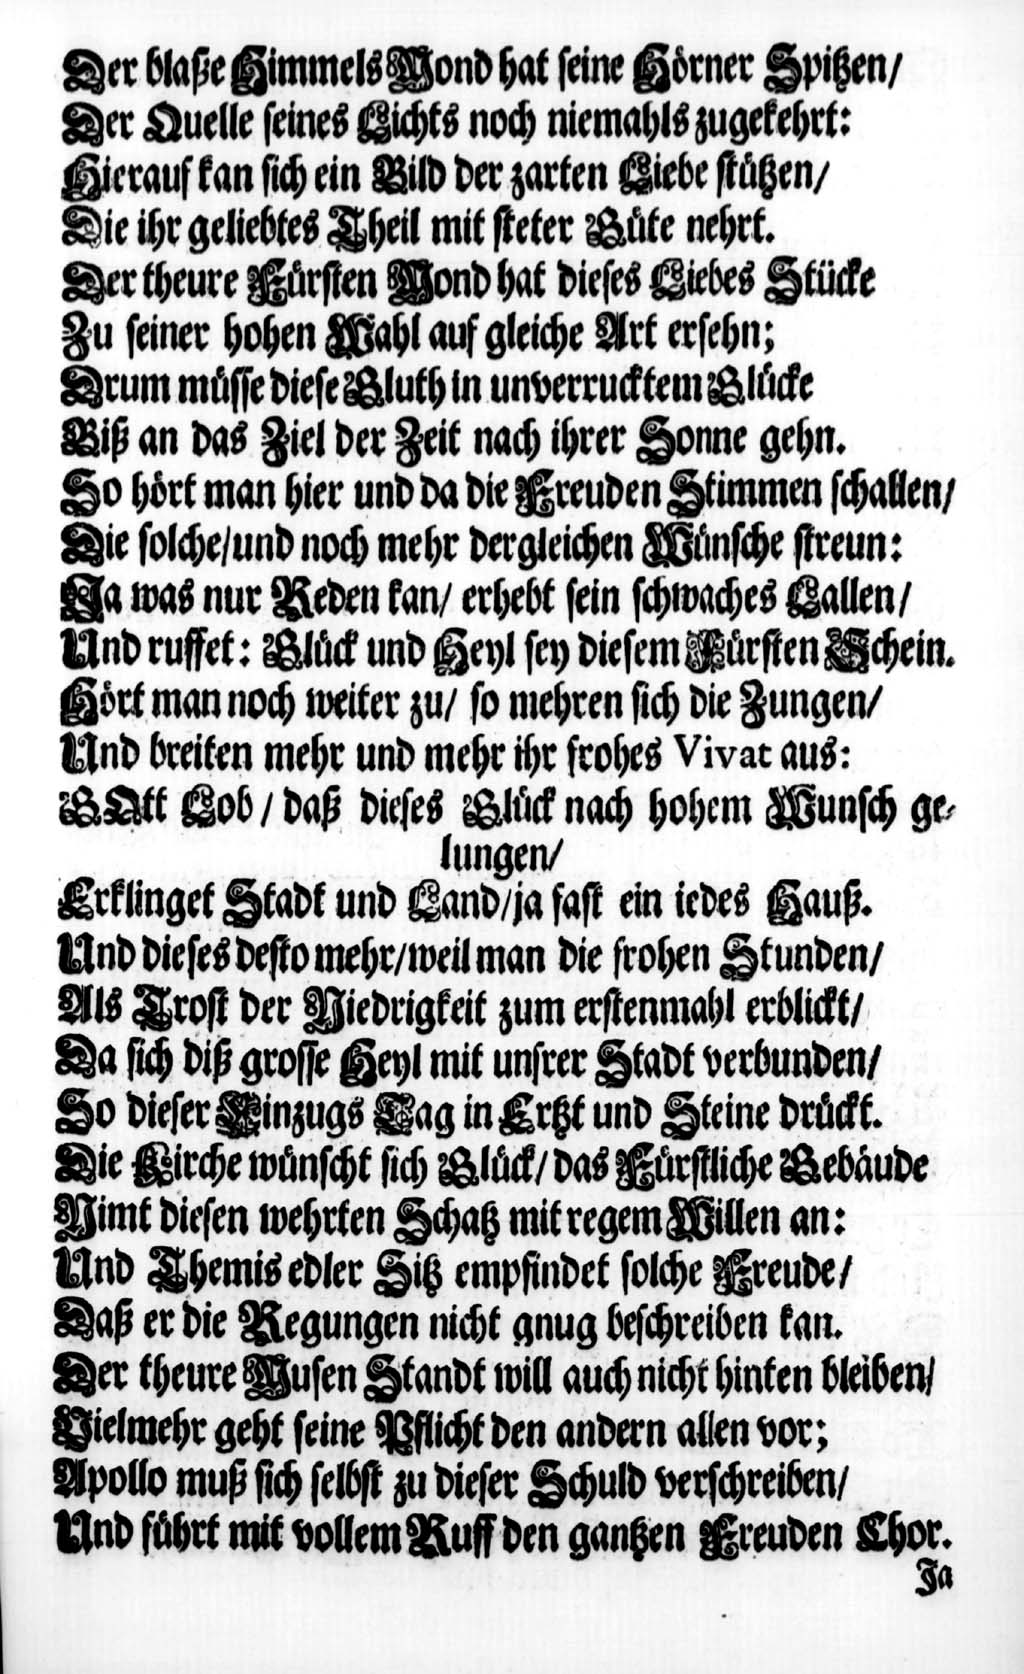 Der blaße Himmels Mond hat seine Hörner Spitzen/
Der Quelle seines Lichts noch niemahls zugekehrt:
Hierauf kan sich ein Bild der zarten Liebe stützen/
Die ihr geliebtes Theil mit steter Güte nehrt.
Der theure Fürsten Mond hat dieses Liebes Stücke
Zu seiner hohen Wahl auf gleiche Art ersehn;
Drum müsse diese Gluth in unverrucktem Glücke
Biß an das Ziel der Zeit nach ihrer Sonne gehn.
So hört man hier und da die Freuden Stimmen schallen/
Die solche/und noch mehr dergleichen Wünsche streun:
Ja was nur Reden kan/ erhebt sein schwaches Lallen/
Und ruffet: Glück und Heyl sey diesem Fürsten Schein.
Hört man noch weiter zu/ so mehren sich die Zungen/
Und breiten mehr und mehr ihr frohes Vivat aus:
GOtt Lob/ daß dieses Glück nach hohem Wunsch ge-
lungen/
Erklinget Stadt und Land/ja fast ein iedes Hauß.
Und dieses desto mehr/weil man die frohen Stunden/
Als Trost der Niedrigkeit zum erstenmahl erblickt/
Da sich diß grosse Heyl mit unsrer Stadt verbunden/
So dieser Einzugs Tag in Ertzt und Steine drückt.
Die Kirche wünscht sich Glück/ das Fürstliche Gebäude
Nimt diesen wehrten Schatz mit regem Willen an:
Und Themis edler Sitz empfindet solche Freude/
Daß er die Regungen nicht gnug beschreiben kan.
Der theure Musen Standt will auch nicht hinten bleiben/
Vielmehr geht seine Pflicht den andern allen vor;
Apollo muß sich selbst zu dieser Schuld verschreiben/
Und führt mit vollem Ruff den gantzen Freuden Chor.
Ja